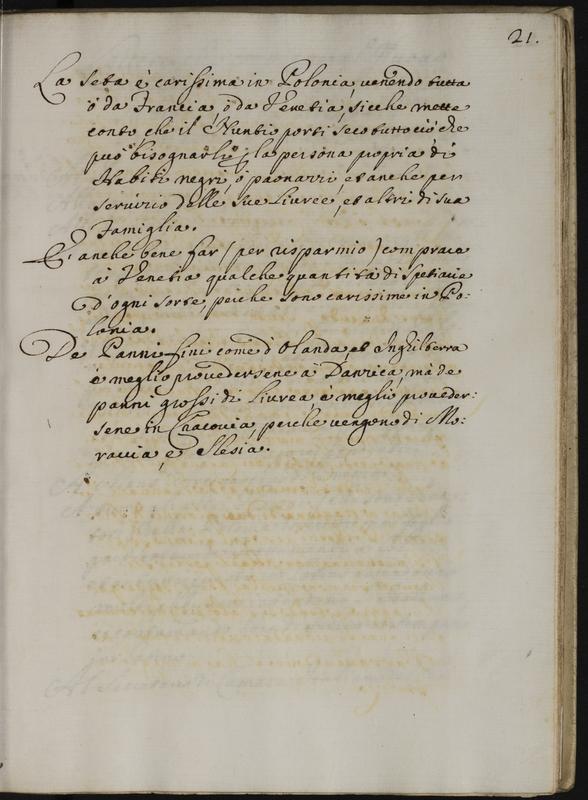 21.
La seta è carissima in Polonia, venendo tutta
ò da Francia, ò da Venetia, sicche mette
conto che il Nuntio porti seco tutto ciò che
può bisognarli p la persona propria di
Habiti negri, ò paonazzi, et anche per
servizio delle sue Livree, et altri di sua
Famiglia.
E' anche bene far (per risparmio) comprare
à Venetia qualche quantità di spetiarie
d'ogni sorte, perche sono carissime in Po:
lonia.
De Panni fini come d'Olanda, et Inghilterra
è meglio provedersene à Danzica, mà de
panni grossi di Livrea, è meglio proveder:
sene in Cracovia, perche vengono di Mo:
ravia, e Slesia.